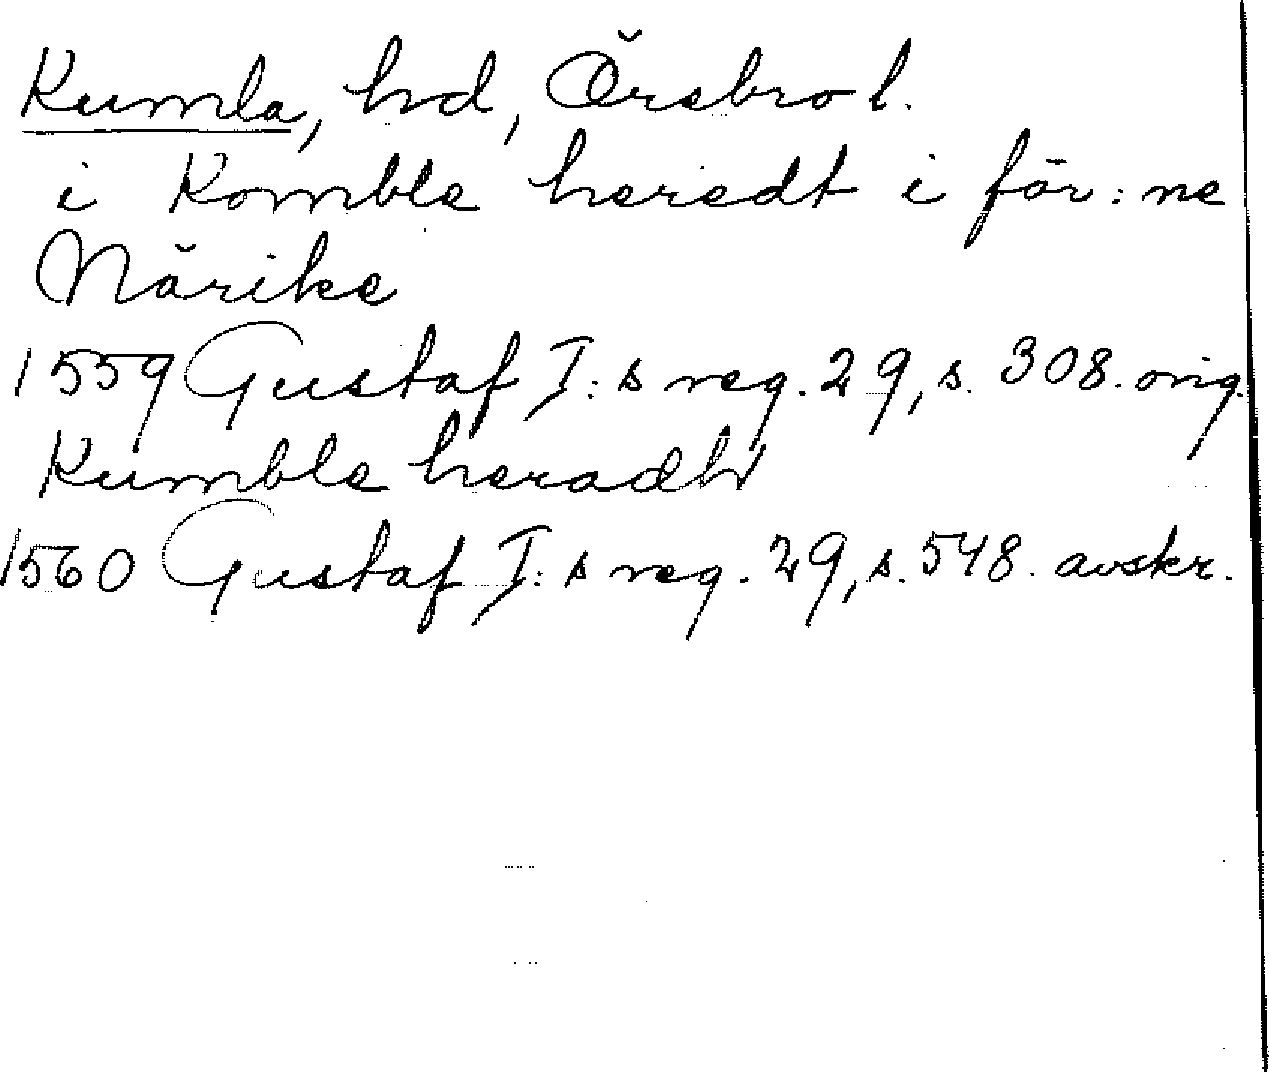 Kumla, hd, Örebro l.
i Komble heredt i för:ne
Närike
1559 Gustaf I:s reg. 29, s. 308. orig.
Kumble heradh
1560 Gustaf I:s reg. 29, s. 548. avskr.